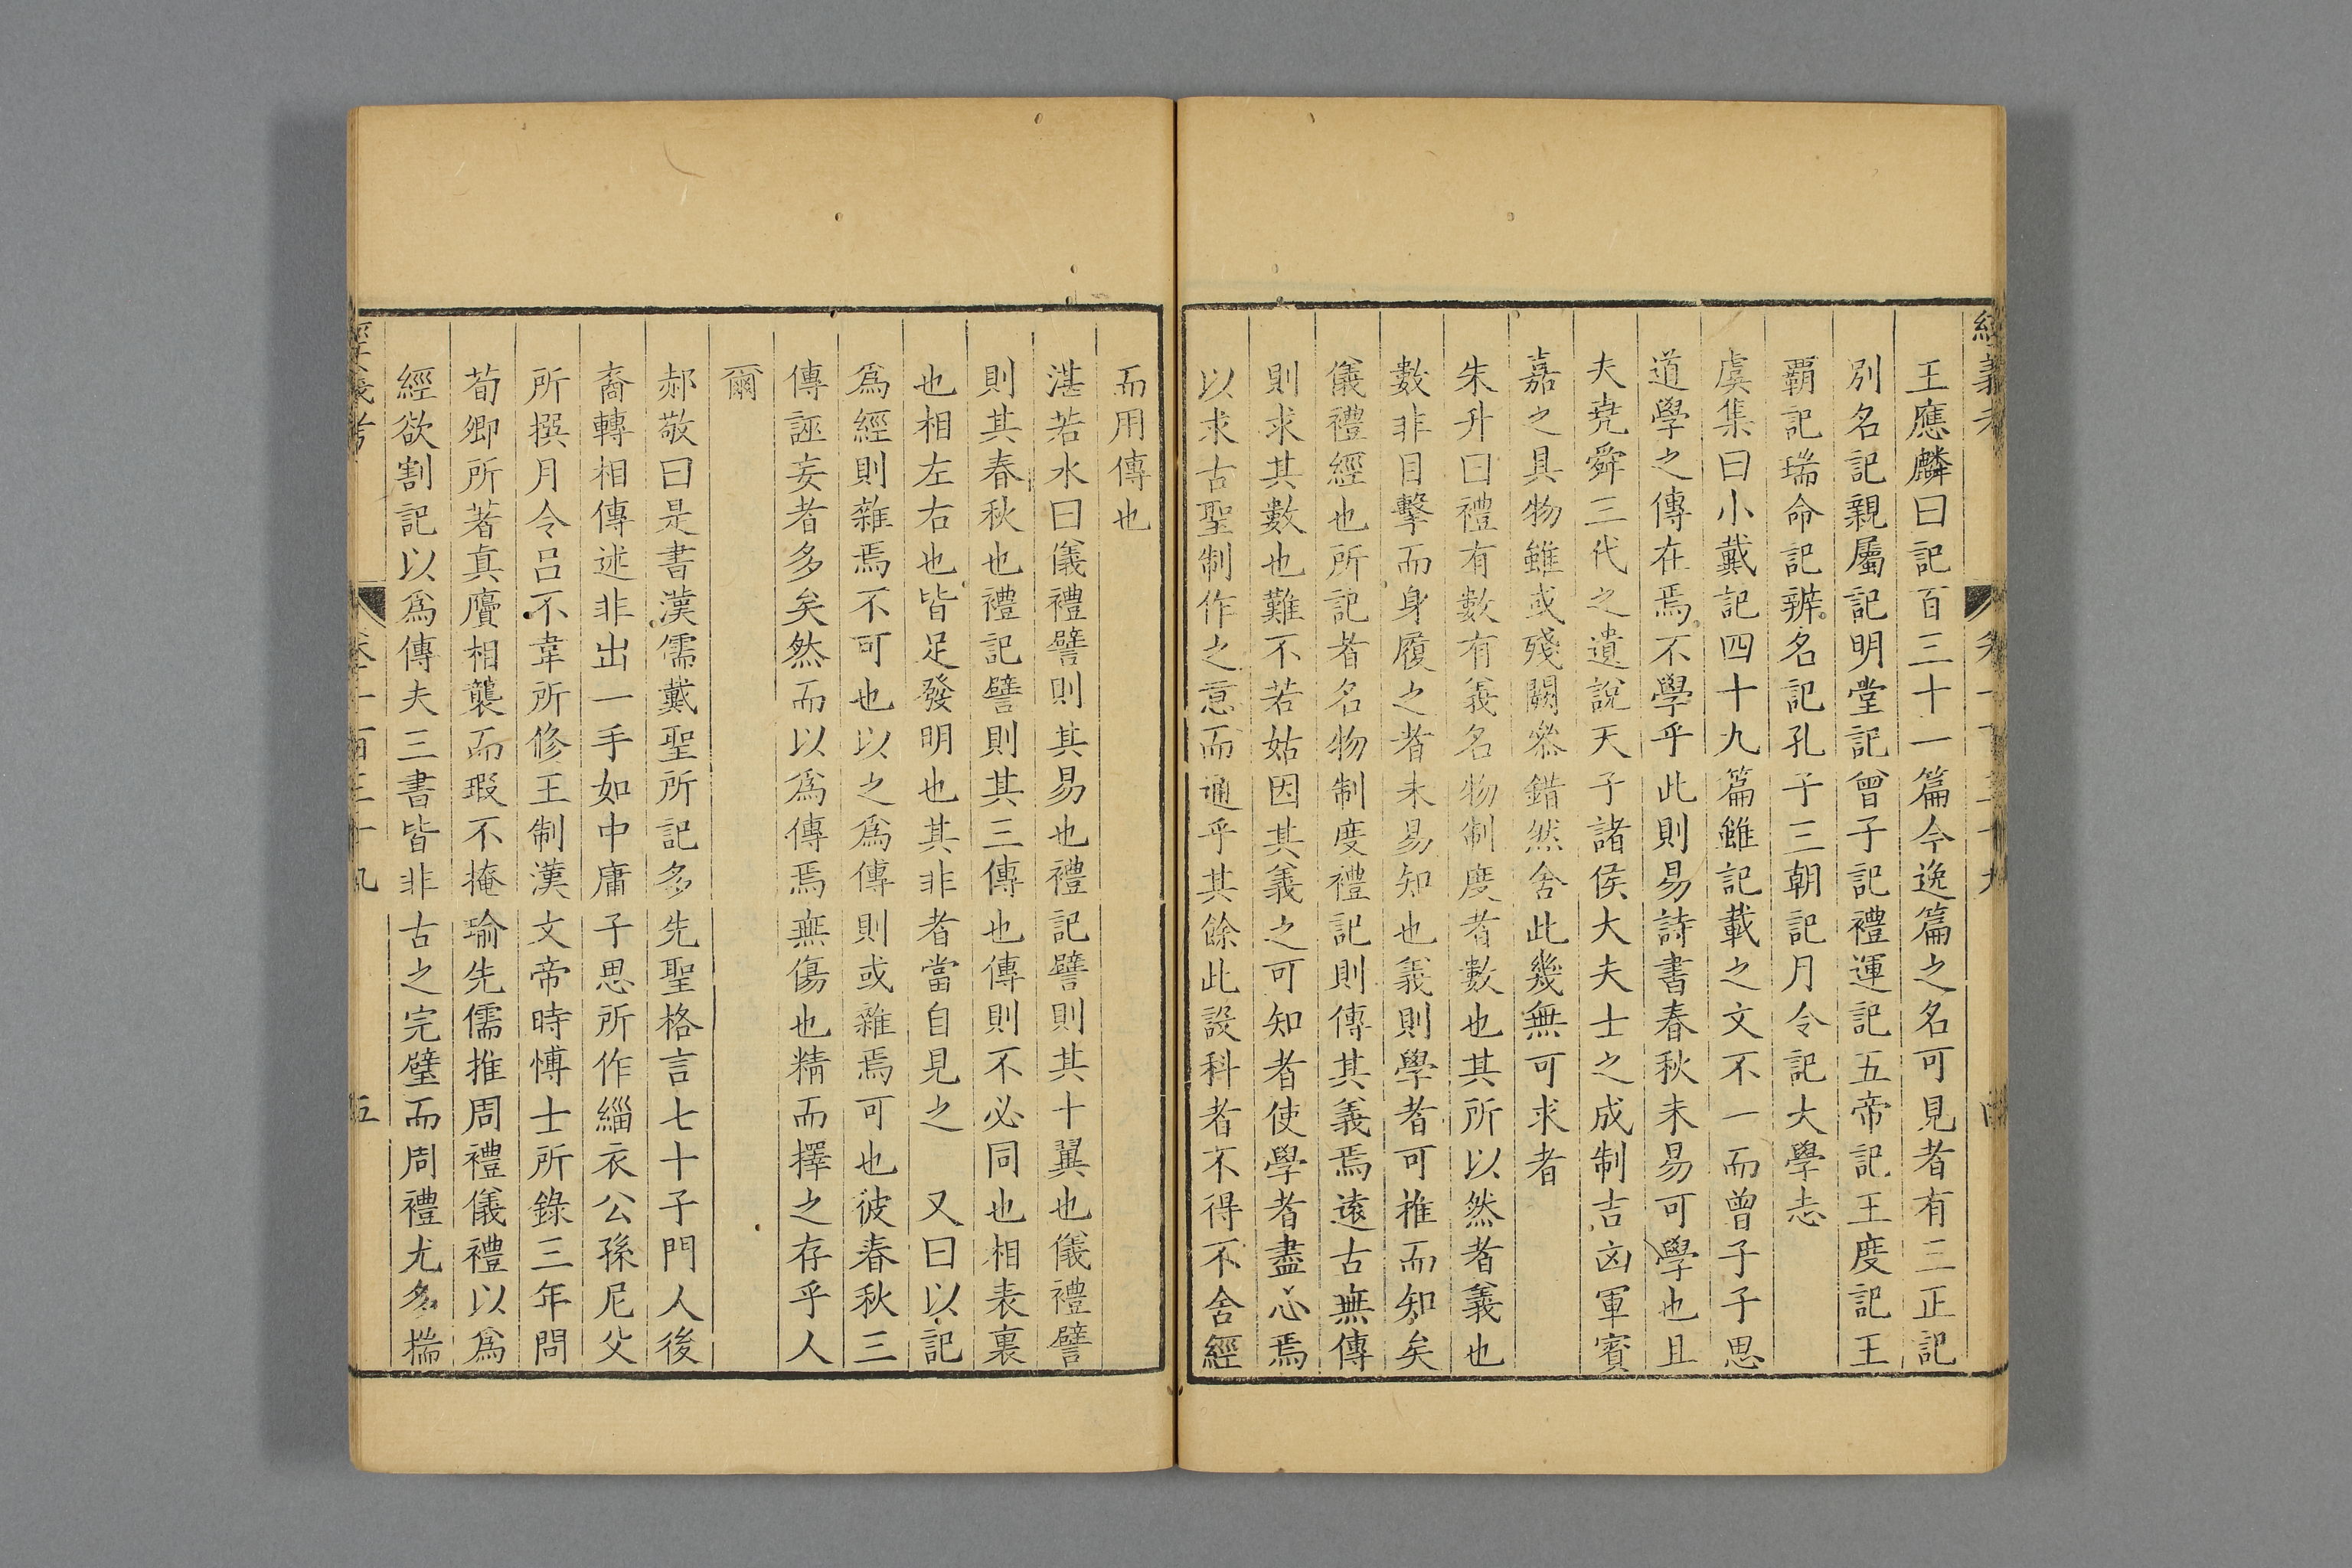 經義考
王應麟曰記百三十一篇今逸篇之名可見者有三正記
別名記親屬記明堂記曾子記禮運記五帝記王度記王
霸記瑞命記辨名記孔子三朝記月令記大學志
虞集曰小戴記四十九篇雖記載之文不一而曾子子思
道學之傳在焉不學乎此則易詩書春秋未易可學也且
夫堯舜三代之遺說天子諸侯大夫士之成制吉凶軍賓
嘉之具物雖或殘闕叅錯然舍此幾無可求者
朱升曰禮有數有義名物制度者數也其所以然者義也
數非目擊而身履之者未易知也義則學者可推而知矣
儀禮經也所記者名物制度禮記則傳其義焉遠古無傳
則求其數也難不若姑因其義之可知者使學者盡心焉
以求古聖制作之意而通乎其餘此設科者不得不舍經
而用傳也
湛若水曰儀禮譬則其易也禮記譬則其十翼也儀禮譬
則其春秋也禮記譬則其三傳也傳則不必同也相表裏
也相左右也皆足發明也其非者當自見之　又曰以記
爲經則雜焉不可也以之爲傳則或雜焉可也彼春秋三
傳誣妄者多矣然而以爲傳焉無傷也精而擇之存乎人
爾
郝敬曰是書漢儒戴聖所記多先聖格言七十子門人後
裔轉相傳述非出一手如中庸子思所作緇衣公孫尼父
所撰月令呂不韋所修王制漢文帝時博士所錄三年問
荀卿所著真贗相襲而瑕不掩瑜先儒推周禮儀禮以爲
經欲割記以爲傳夫三書皆非古之完璧而周禮尤多揣
經義考　卷一百三十九　五